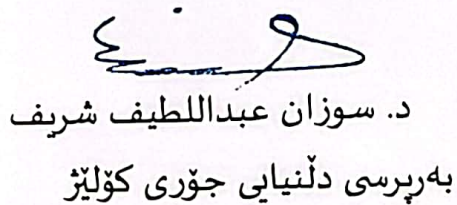 د. سوزان عبداللطيف شريف
بەرپرسی دڵنیایی جۆری کۆلێژ